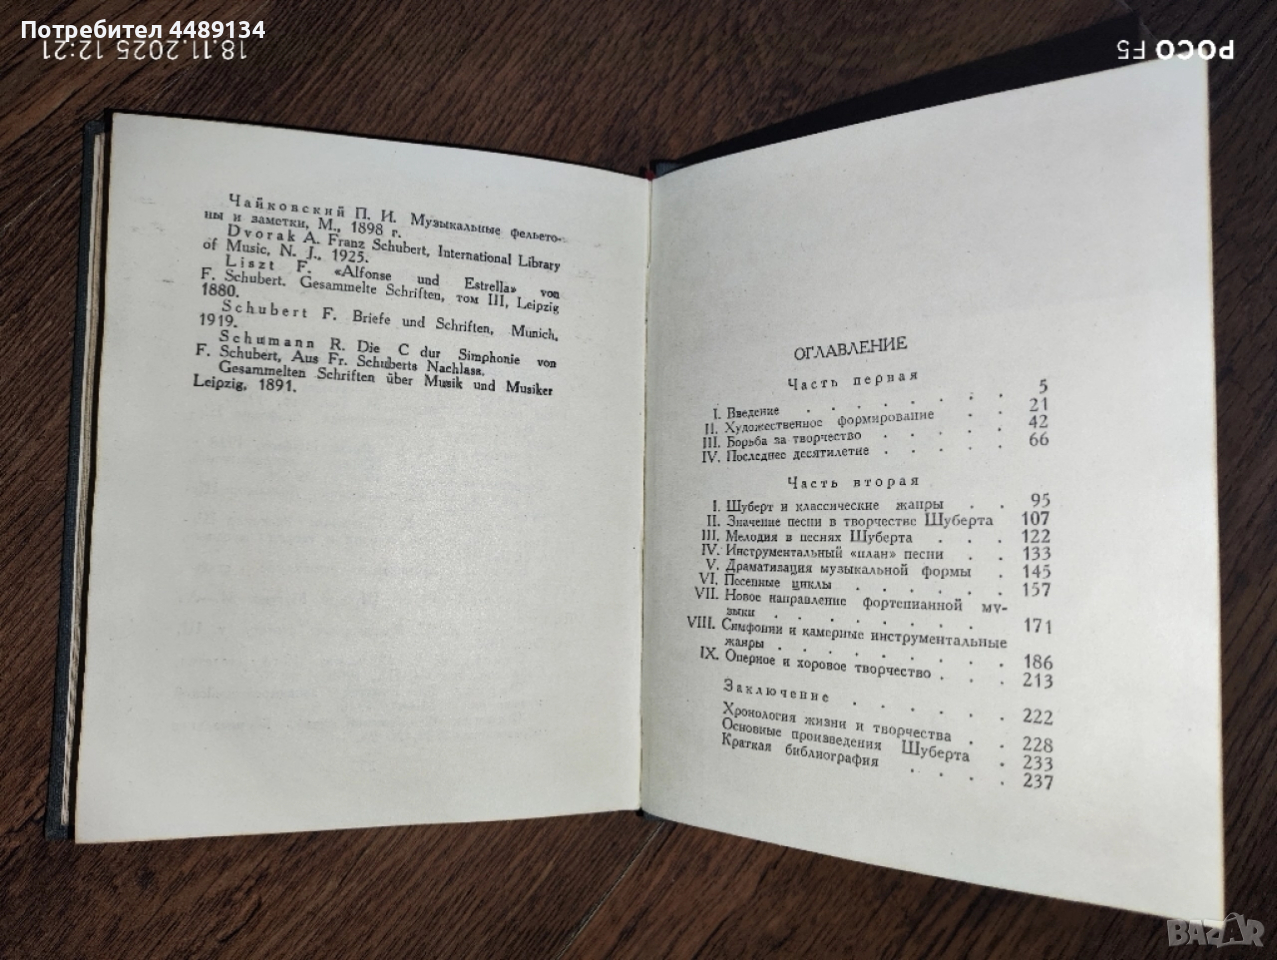 Потребител 4489134
18.11.2025 12:21
POCO F5
Чайковский П. И. Музыкальные фельето-
ны и заметки, М., 1898 г.
Dvorak A. Franz Schubert, International Library
of Music, N. J., 1925.
Liszt F. «Alfonse und Estrella» von
F. Schubert. Gesammelte Schriften, том III, Leipzig
1880.
Schubert F. Briefe und Schriften, Munich,
1919.
Schumann R. Die C dur Simphonie von
F. Schubert, Aus Fr. Schuberts Nachlass.
Gesammelten Schriften über Musik und Musiker
Leipzig, 1891.
ОГЛАВЛЕНИЕ
Часть первая
I. Введение . . . . . . . . 5
II. Художественное формирование . . 21
III. Борьба за творчество . . . . . 42
IV. Последнее десятилетие . . . . . 66
Часть вторая
I. Шуберт и классические жанры . . 95
II. Значение песни в творчестве Шуберта 107
III. Мелодия в песнях Шуберта . . . 122
IV. Инструментальный «план» песни . . 133
V. Драматизация музыкальной формы . 145
VI. Песенные циклы . . . . . . 157
VII. Новое направление фортепианной му-
зыки . . . . . . . . 171
VIII. Симфонии и камерные инструментальные
жанры . . . . . . . . 186
IX. Оперное и хоровое творчество . . . 213
Заключение . . . . . . 222
Хронология жизни и творчества . . 228
Основные произведения Шуберта . 233
Краткая библиография . . . . 237
BAZAR